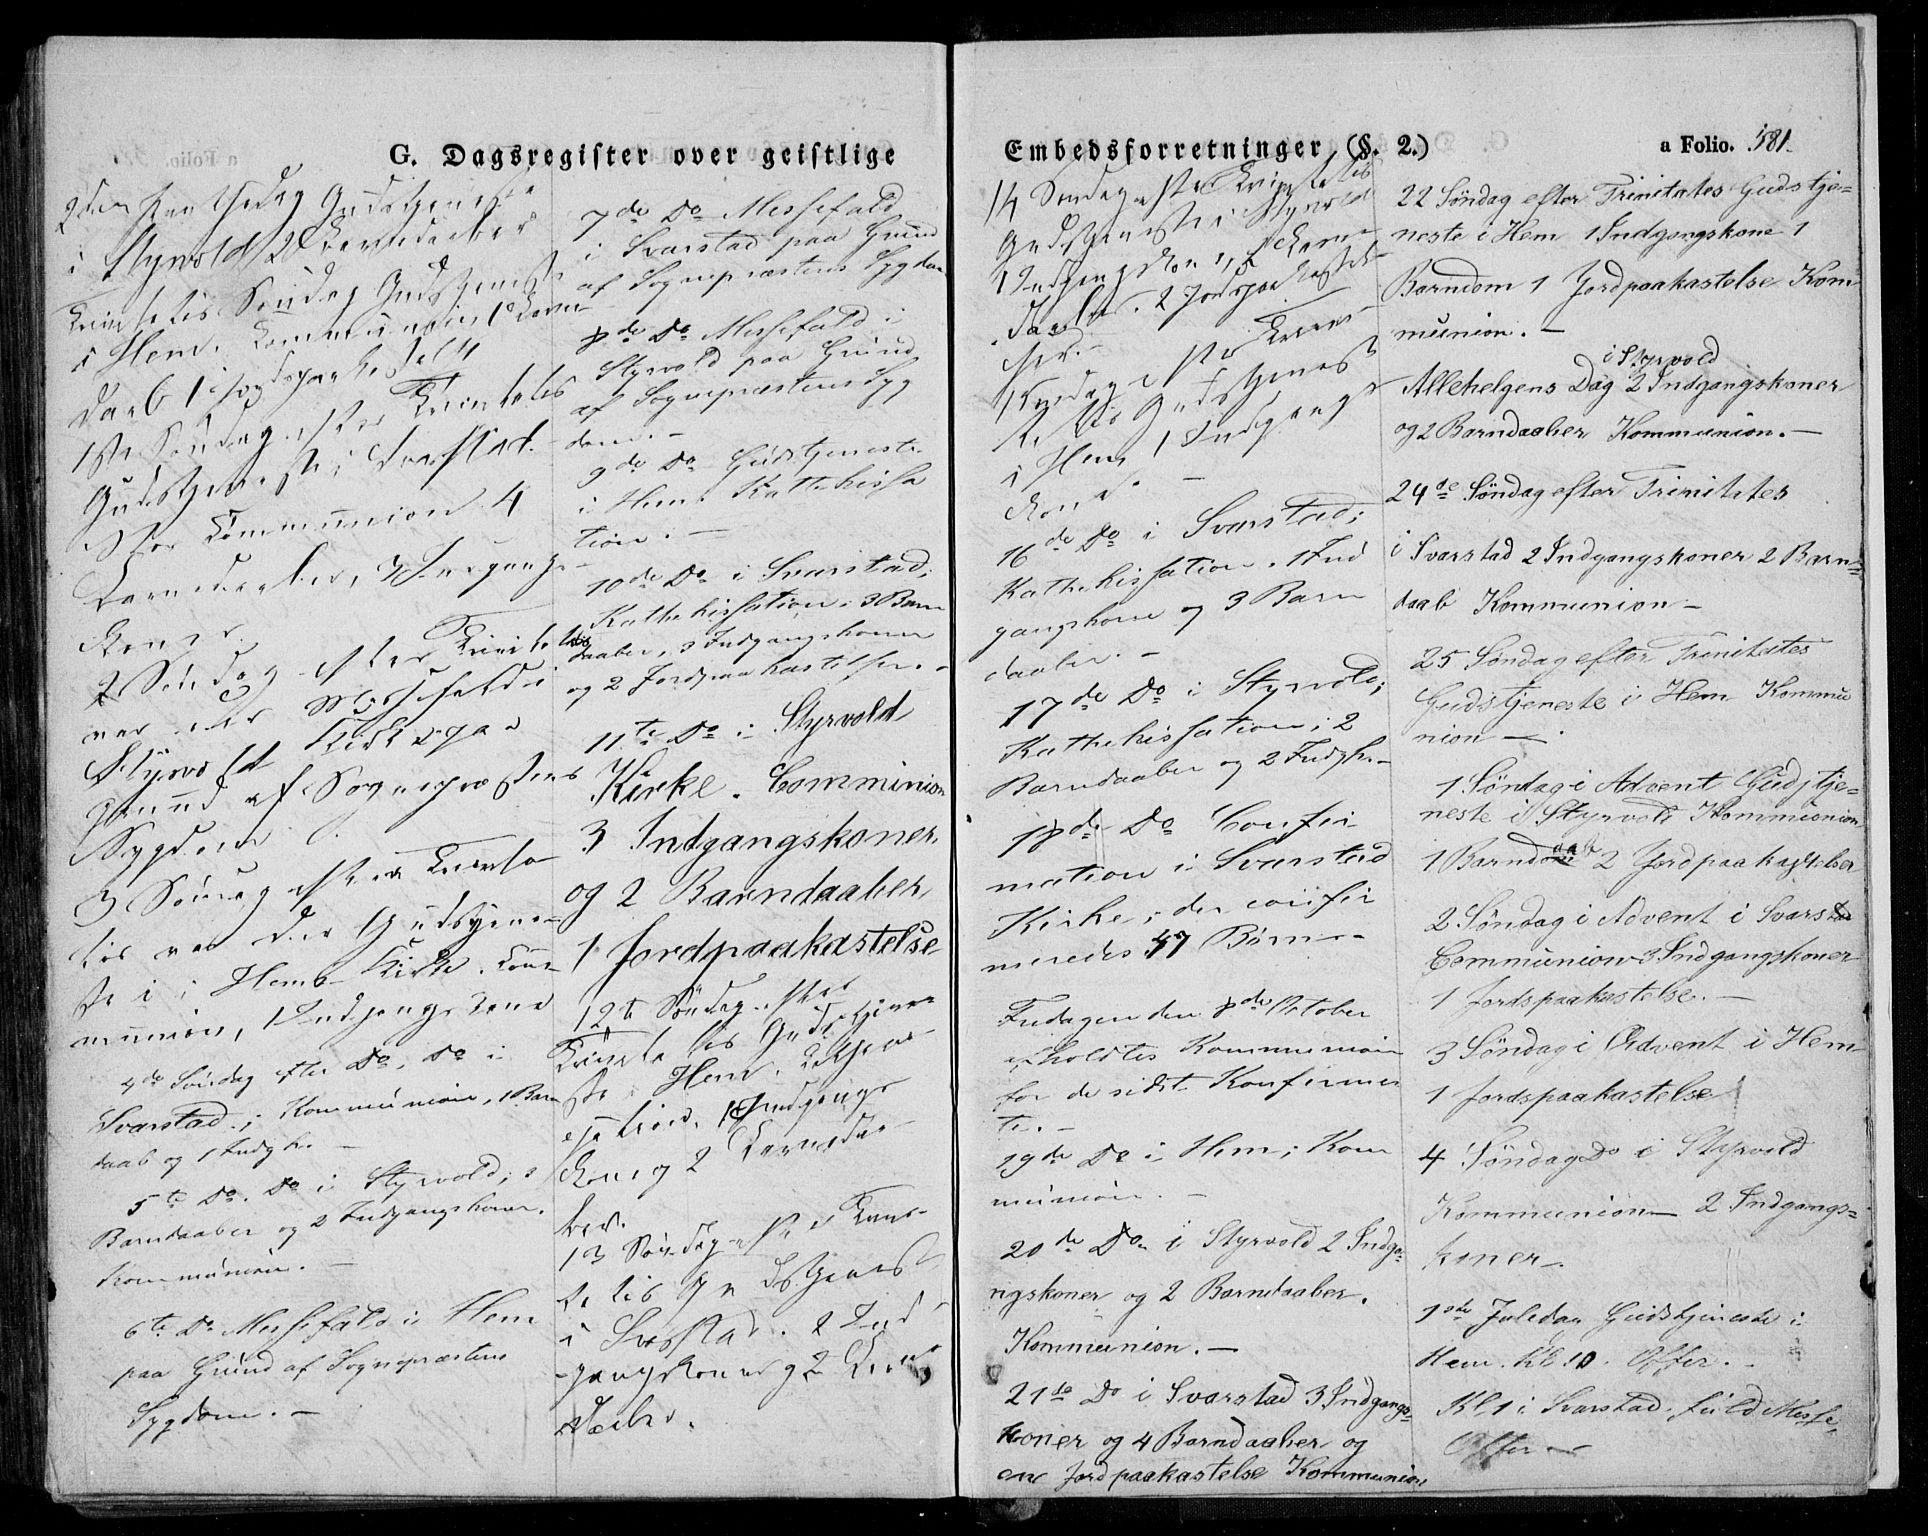 G. Dagsregister over geistlige
2den Gudstjeneste
i Styrvold 2 Barndaaber
Trinitatis Søndag Gudstjeneste
i Hem. Communion 1 Barn
daab 1 Jordpaakastelse
1ste Søndag efter Trinitatis
Gudstjeneste i Svarstad
Communion 4
Barndaaber, 3 Indgangs
koner.
2 Søndag efter Trinitatis
var der Messefald i
Styrvold Kirke paa
Grund af Sognepræstens
Sygdom.
3 Søndag efter Trinita
tis var der Gudstjene
ste i Hems Kirke. Com
munion, 1 Indgangskone
4de Søndag efter Do, Do i
Svarstad; Kommunion, 1 Barn
daab og 1 Indgk. —
5te Do. Do i Styrvold; 2
Barndaaber og 2 Indgangskoner.
Kommunion. —
6te Do Messefald i Hem
paa Grund af Sognepræstens
Sygdom. —
7de Do Messefald
i Svarstad paa Grund
af Sognepræstens Sygdom
8de Do Messefald i
Styrvold paa Grund
af Sognepræstens Syg
dom. —
9de Do Gudstjeneste
i Hem. Kathekisa
tion. —
10de Do i Svarstad;
Kathekisation; 3 Barn
daaber, 3 Indgangskoner
og 2 Jordpaakastelser. —
11te Do i Styrvold
Kirke. Comminion
3 Indgangskoner,
og 2 Barndaaber,
1 Jordpaakastelse
12te Søndag efter
Trinitatis Gudstjene
ste i Hem.
1 Indgangs
kone og 2 Barndaa
ber.
13 Søndag efter Trini
tatis Gudstjeneste
i Svarstad. 2 Ind
gangskoner og 2 Barn
daaber.
Embedsforretninger (§. 2.)
a Folio. 581.
14 Søndag efter Trinitatis
Gudstjeneste i Styrvold
1 Indgangskone,
daaber. 2 Jordpaakastel
ser. —
15 Søndag efter Trini
tatis Gudstjeneste
i Hem 1 Indgangs
kone. —
16de Do i Svarstad;
Kathekisation. 1 Ind
gangskone og 3 Barn
daaber. —
17de Do i Styrvold;
Kathekisation; 2
Barndaaber og 2 Indgk. —
18de Do Confir
mation i Svarstad
Kirke; der confir
meredes 47 Børn. —
Fredagen den 8de October
afholdtes Kommunion
for de sidst Konfirmer
te. —
19de Do i Hem; Kom
munion. —
20de Do i Styrvold 2 Indga-
ngskoner og 2 Barndaaber.
Kommunion. —
21de Do i Svarstad 3 Indgangs-
koner og 4 Barndaaber og
en Jordpaakastelse Kommunion
22 Søndag efter Trinitates Gudstje-
neste i Hem 1 Indgangskone 1
Barndom 1 Jordpaakastelse Kom
munion. —
i Styrvold
Allehelgens Dag 2 Indgangskoner
og 2 Barndaaber Kommunion. —
24de Søndag efter Trinitates
i Svarstad 2 Indgangskoner 2 Barn-
daab Kommunion —
25 Søndag efter Trinitates
Gudstjeneste i Hem Kommu
nion —
1 Søndag i Advent Gudstje-
neste i Styrvold Kommunion
1 Barndaab 2 Jordpaakastelser
2 Søndag i Advent i Svarstad
Communion 3 Indgangskoner
1 Jordspaakastelse. —
3 Søndag i Advent i Hem
1 Jordspaakastelse
4 Søndag Do i Styrvold
Kommunion — 2 Indgangs-
koner —
1ste Juledag Gudstjeneste i
Hem. Kl. 10. Offer. —
Kl. 1 i Svarstad. fuld Messe,
Offer —